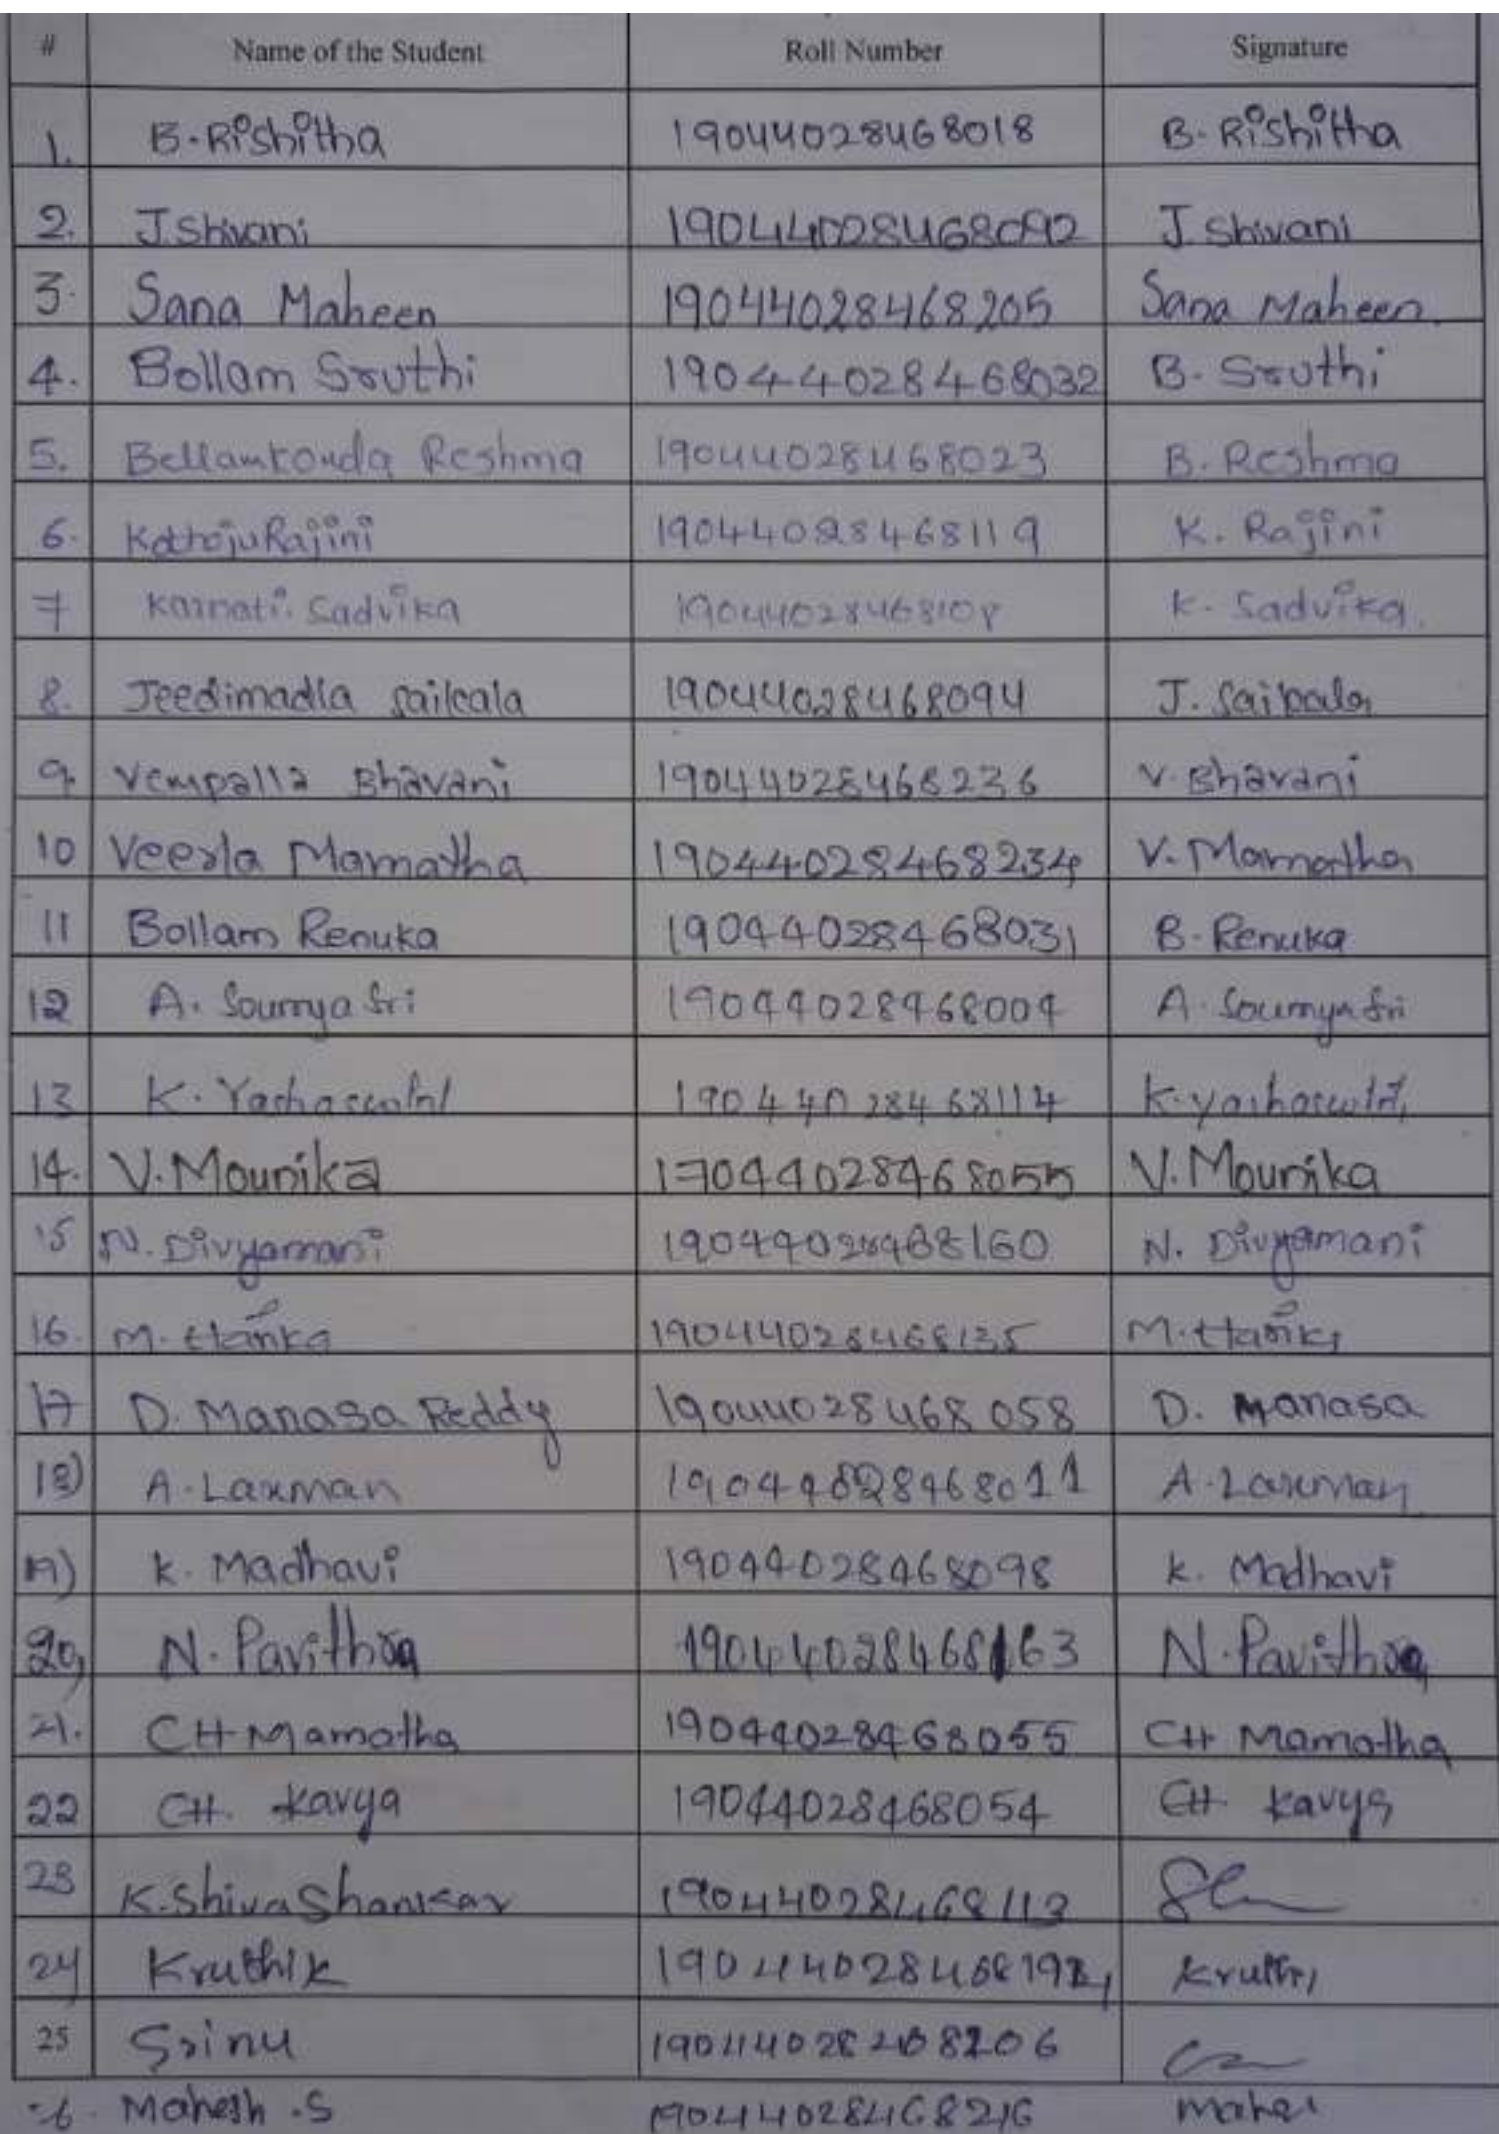 # Name of the Student Roll Number Signature
1. B. Rishitha 19044028468018 B. Rishitha
2. J. Shivani 19044028468092 J. Shivani
3. Sana Maheen 19044028468205 Sana Maheen.
4. Bollam Sruthi 19044028468032 B. Sruthi
5. Bellamkonda Reshma 19044028468023 B. Reshma
6. Kothoju Rajini 19044028468119 K. Rajini
7 Karnati. Sadvika 19044028468108 K. Sadvika.
8. Jeedimadla Saikala 19044028468094 J. Saikala
9. Vempalla Bhavani 19044028468236 V. Bhavani
10 Veerla Mamatha 19044028468234 V. Mamatha
11 Bollam Renuka 19044028468031 B. Renuka
12 A. Soumya Sri 19044028468004 A. Soumya Sri
13 K. Yashaswini 19044028468114 K. yashaswini
14. V. Mounika 17044028468055 V. Mounika
15 N. Divyamani 19044028468160 N. Divyamani
16. M. Harika 19044028468135 M. Harika
17 D. Manasa Reddy 19044028468058 D. Manasa
18) A. Laxman 19044028468011 A. Laxman
19) K. Madhavi 19044028468098 K. Madhavi
20, N. Pavithra 19044028468163 N. Pavithra
21. CH Mamatha 19044028468055 CH Mamatha
22 CH. Kavya 19044028468054 CH Kavya
23 K. Shiva Shankar 19044028468113
24 Kruthik Kruthi
25 Srinu
Mahesh .S 19044028468216 Mahe